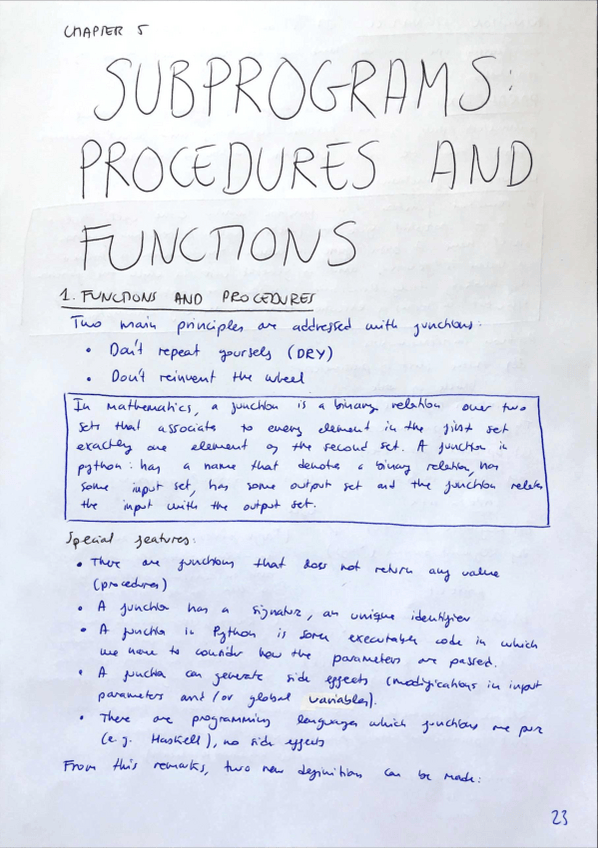 CHAPTER 5
SUBPROGRAMS:
PROCEDURES AND
FUNCTIONS
1. FUNCTIONS AND PROCEDURES
Two main principles are addressed with functions:
• Don't repeat yourself (DRY)
• Don't reinvent the wheel
In mathematics, a function is a binary relation over two
sets that associate to every element in the first set
exactly one element of the second set. A function in
python: has a name that denote a binary relation, has
some input set, has some output set and the function relates
the input with the output set.
Special features:
• There are functions that does not return any value
(procedures)
• A function has a signature, an unique identifier
• A function in Python is some executable code in which
we have to consider how the parameters are passed.
• A function can generate side effects (modifications in input
parameters and/or global variables).
• There are programming languages which functions are pure
(e.g. Haskell), no side effects
From this remarks, two new definition can be made:
23